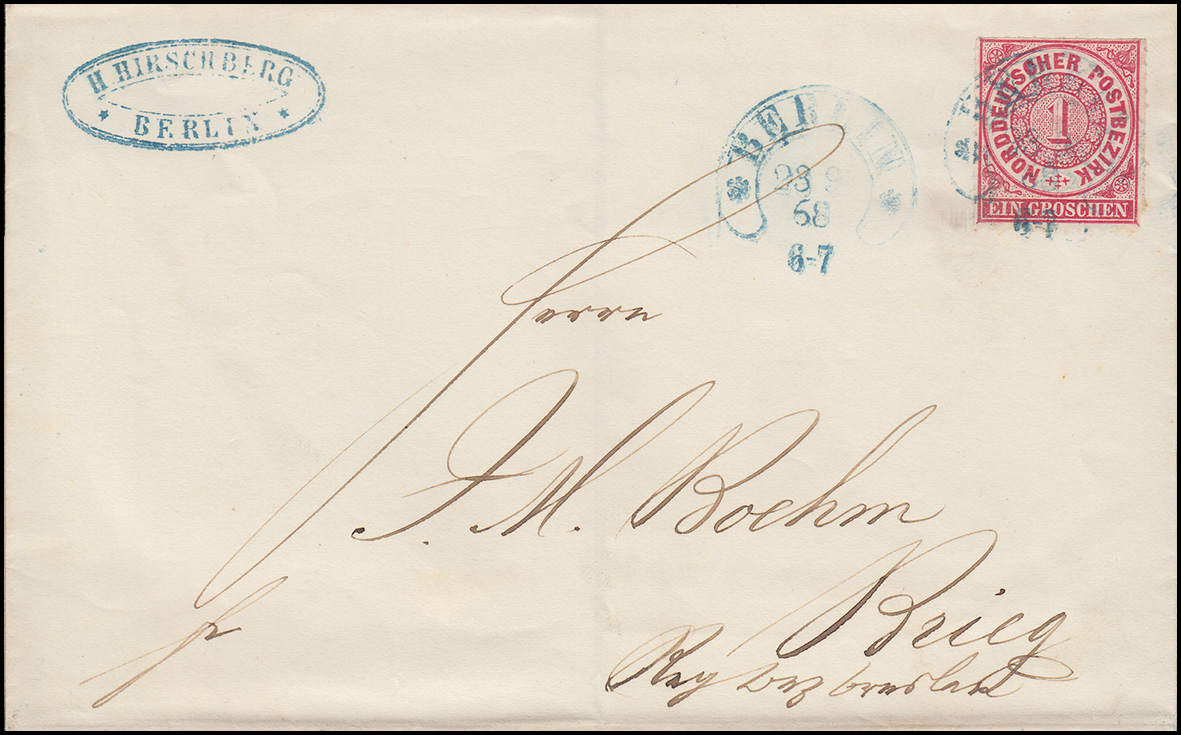 H. HIRSCHBERG
* BERLIN *
BERLIN
23 9
68
6-7
NORDDEUTSCHER POSTBEZIRK
1
EIN GROSCHEN
6-7
Herrn
F. M. Boehm
Brieg
Reg Bez Breslau